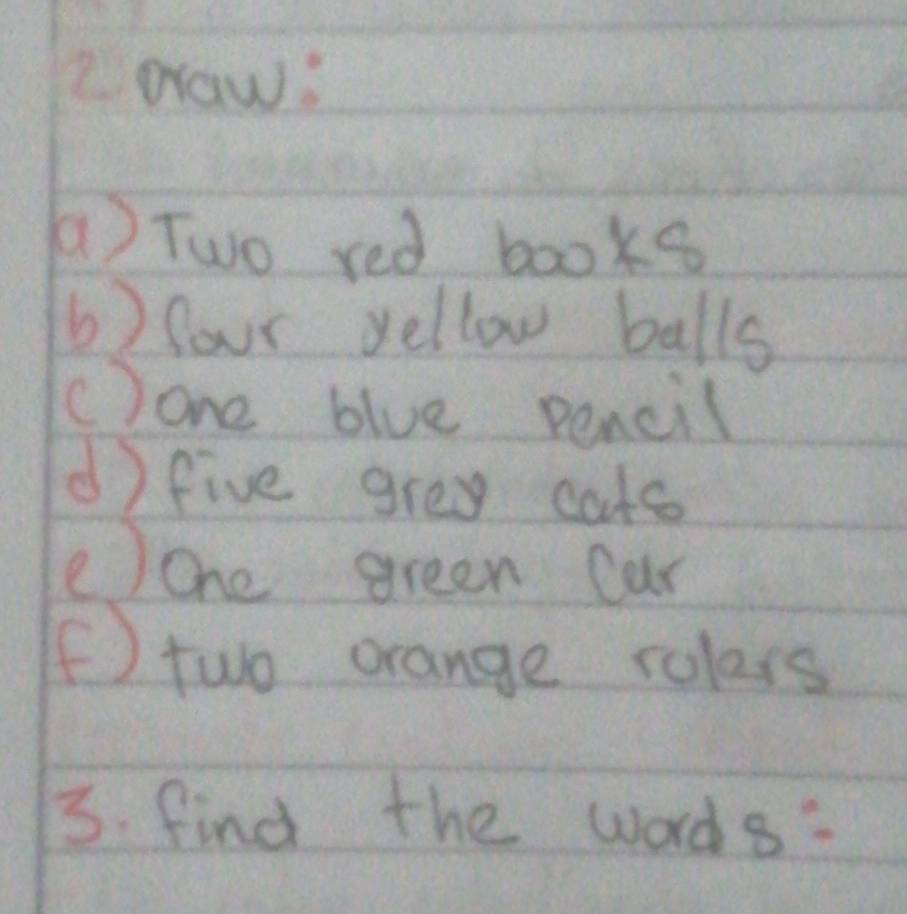 2 Draw:
a) Two red books
b) four yellow balls
c) One blue pencil
d) five grey cats
e) One green Car
f) two orange rolers
3. find the words: